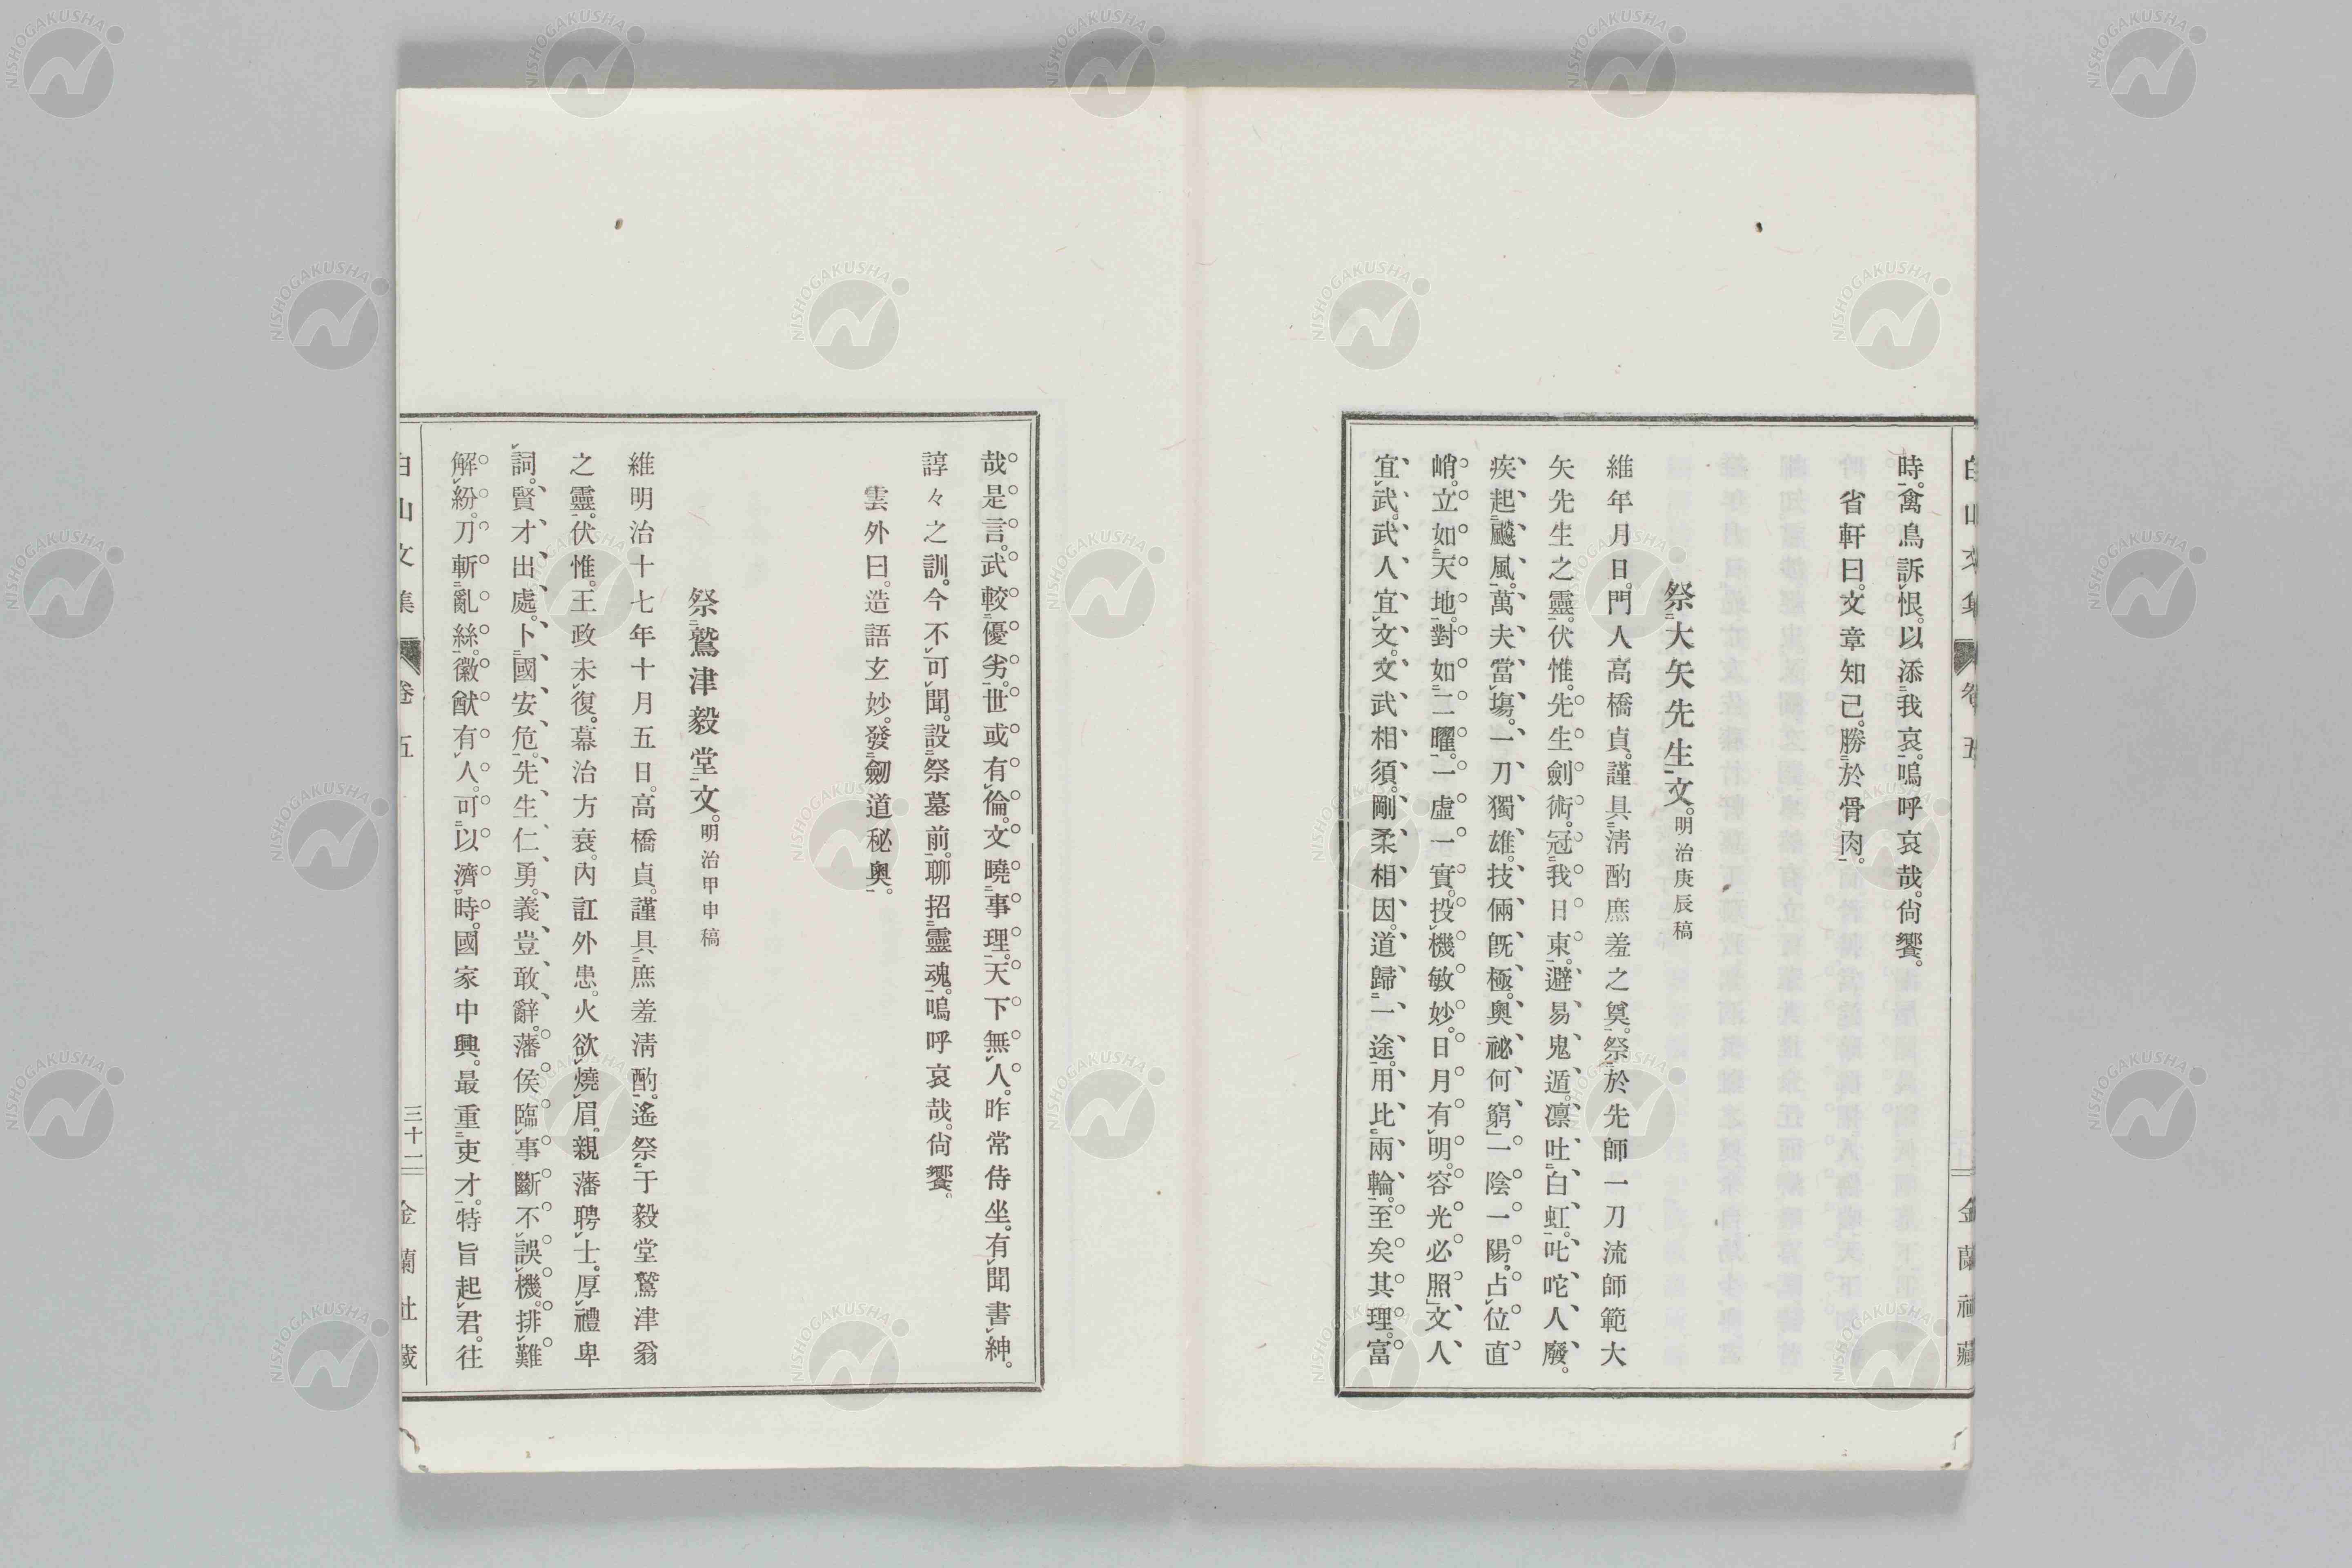 時。禽鳥訴恨。以添我哀。嗚呼哀哉。尙饗。
省軒曰。文章知己。勝於骨肉。
祭大矢先生文。明治庚辰稿
維年月日。門人高橋貞。謹具淸酌庶羞之奠。祭於先師一刀流師範大
矢先生之靈。伏惟。先生劍術。冠我日東。避易鬼遁。凛吐白虹。叱咤人廢。
疾起颷風。萬夫當塲。一刀獨雄。技倆旣極。奧祕何窮」一陰一陽。占位直
峭。立如天地。對如二曜。一虛一實。投機敏妙。日月有明。容光必照」文人
宜武。武人宜文。文武相須。剛柔相因。道歸一途。用比兩輪。至矣其理。富
哉是言。武較優劣。世或有倫。文曉事理。天下無人。昨常侍坐。有聞書紳。
諄々之訓。今不可聞。設祭墓前。聊招靈魂。嗚呼哀哉。尙饗。
雲外曰。造語玄妙。發劒道秘奧。
祭鷲津毅堂文。明治甲申稿
維明治十七年十月五日。高橋貞。謹具庶羞淸酌。遙祭于毅堂鷲津翁
之靈。伏惟。王政未復。幕治方衰。內訌外患。火欲燒眉。親藩聘士。厚禮卑
詞。賢才出處。卜國安危。先生仁勇。義豈敢辭。藩侯臨事。斷不誤機。排難
解紛。刀斬亂絲。徽猷有人。可以濟時。國家中興。最重吏才。特旨起君。往
白山文集
卷五
三十一
金蘭社藏